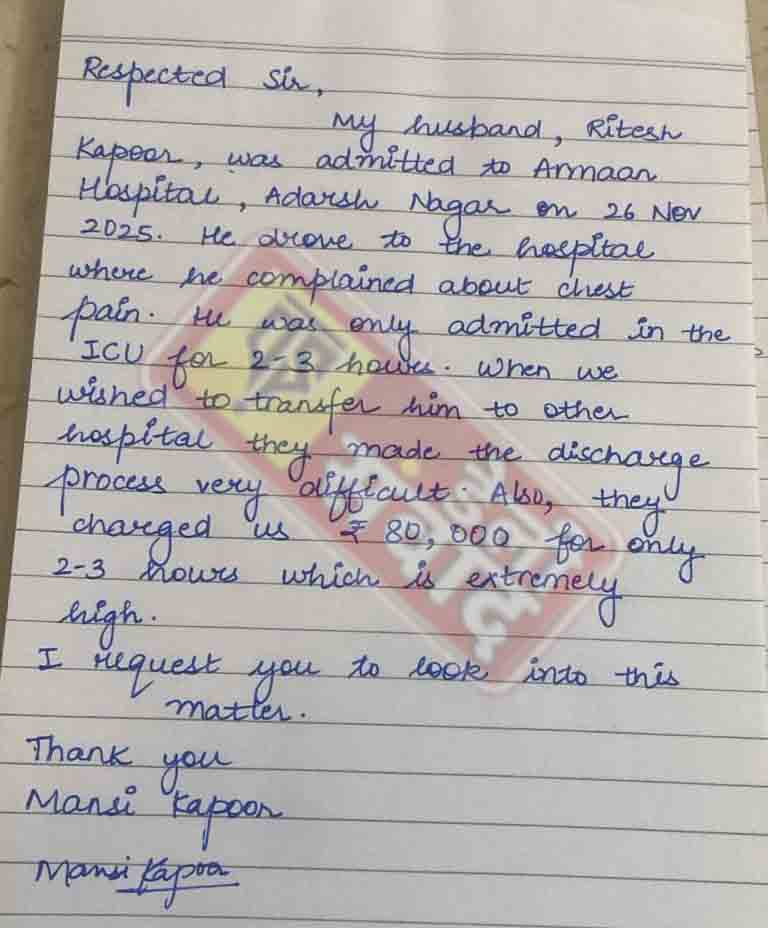 Respected Sir,
My husband, Ritesh
Kapoor, was admitted to Armaan
Hospital, Adarsh Nagar on 26 Nov
2025. He drove to the hospital
where he complained about chest
pain. He was only admitted in the
ICU for 2-3 hours. When we
wished to transfer him to other
hospital they made the discharge
process very difficult. Also, they
charged us ₹ 80,000 for only
2-3 hours which is extremely
high.
I request you to look into this
matter.
Thank you
Mansi Kapoor
Mansi Kapoor